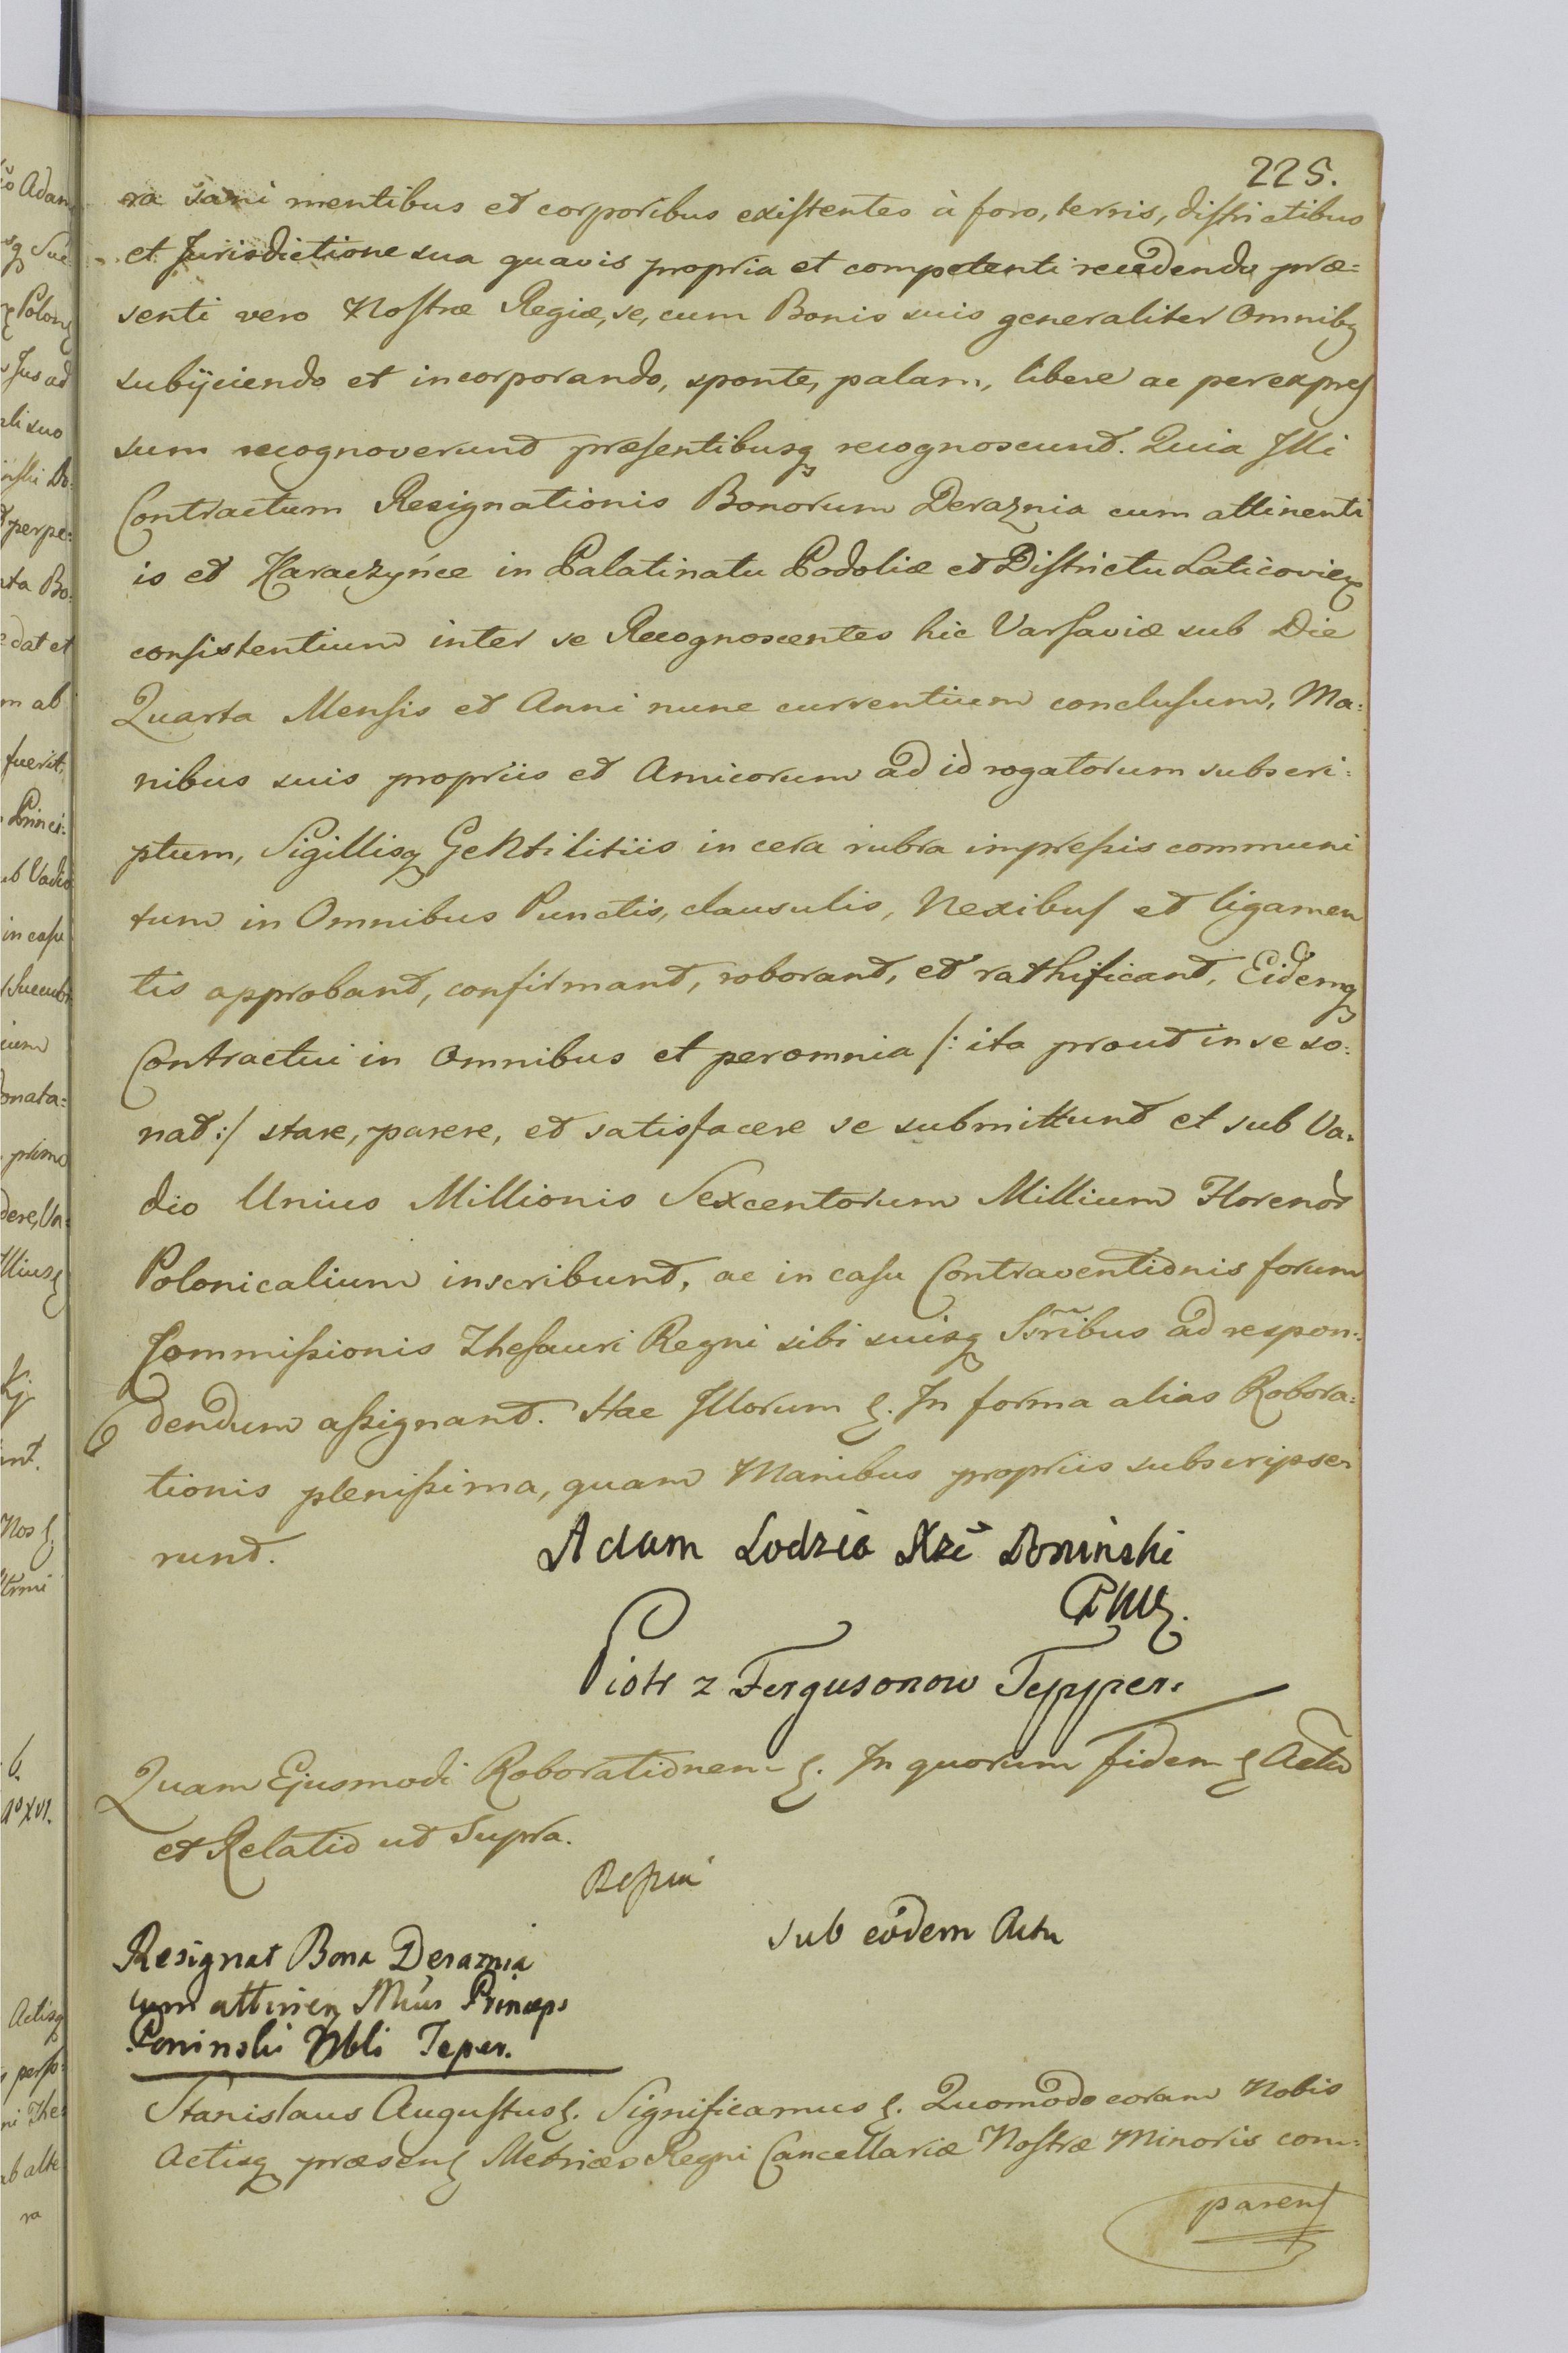 225.
ra sani mentibus et corporibus existentes à foro, terris, districtibus
et Jurisdictione sua quavis propria et competenti recedendo præ=
senti vero Nostræ Regiæ, se, cum Bonis suis generaliter Omnibq
subijciendo et incorporando, sponte, palam, libere ac perexpres
sum recognoverunt præsentibusq recognoscunt. Quia Illi
Contractum Resignationis Bonorum Deraznia cum attinenti
is et Haraczyńce in Palatinatu Podoliæ et Districtu Laticovien
consistentium inter se Recognoscentes hic Varsaviæ sub Die
Quarta Mensis et Anni nunc currentium conclusum, Ma=
nibus suis propriis et Amicorum ad id rogatorum subscri=
ptum, Sigillisq Gentilitiis in cera rubra impressis communi
tum in Omnibus Punctis, clausulis, Nexibus et ligamen
tis approbant, confirmant, roborant, et rathificant, Eidemq
Contractui in Omnibus et per omnia /: ita prout in se so=
nat :/ stare, parere, et satisfacere se submittunt et sub Va=
dio Unius Millionis Sexcentorum Millium Florenor
Polonicalium inscribunt, ac in casu Contraventionis forum
Commissionis Thesauri Regni sibi suisq Ssribus ad respon=
dendum assignant. Hac Illorum &. In forma alias Robora=
tionis plenissima, quam Manibus propriis subscripse=
runt.
Adam Lodzia Xże Poninski
PWK.
Piotr z Fergusonow Tepper.
Quam Ejusmodi Roborationem &. In quorum fidem & Actu
et Relatio ut Supra.
Sub eodem Actu
Resignat Bona Deraznia
cum attinen Illmus Princeps
Poninski Nbli Teper.
Stanislaus Augustus &. Significamus &. Quomodo coram Nobis
Actisq præsen Metrices Regni Cancellariæ Nostræ Minoris com=
paren